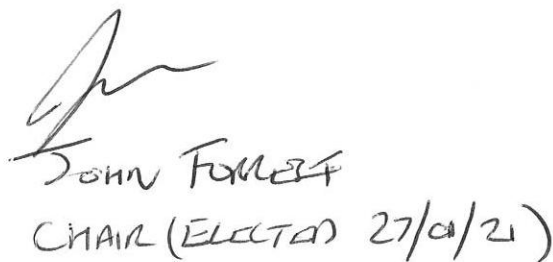 JOHN FORREST
CHAIR (ELECTED 27/01/21)